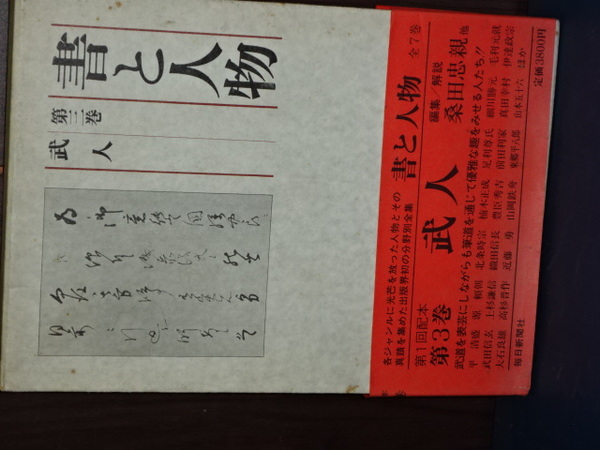 書と人物
第三巻
武人
書と人物 全7巻
編集/解説
桑田忠親 他
各ジャンルに光芒を放った人物とその
真蹟を集めた出版界初の分野別全集
武人
第1回配本
第3巻
武道を表芸にしながらも筆道を通じて優雅な趣をみせる人たち!!
平 清盛 源 頼朝 北条時宗 楠木正成 足利尊氏 細川勝元 毛利元就
武田信玄 上杉謙信 織田信長 豊臣秀吉 前田利家 真田幸村 伊達政宗
大石良雄 高杉晋作 近藤 勇 山岡鉄舟 東郷平八郎 山本五十六 ほか
毎日新聞社
定価3800円